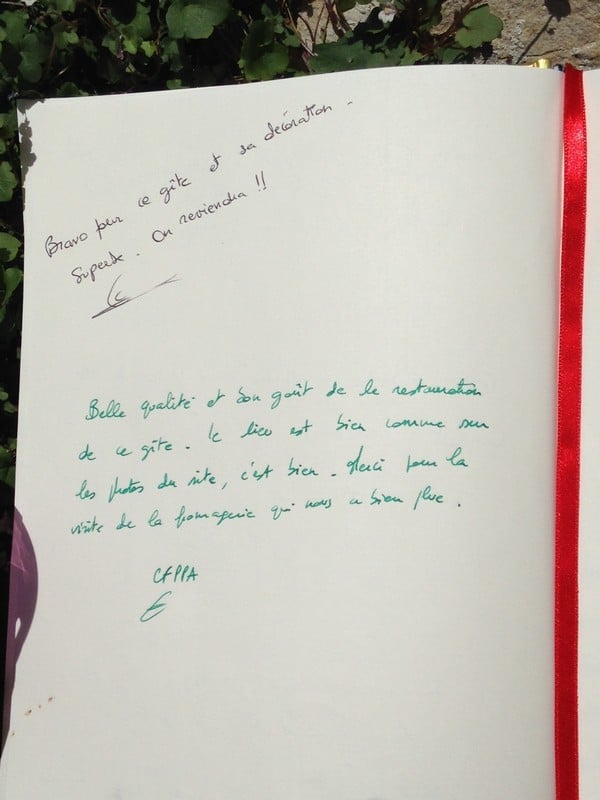 Bravo pour ce gîte et sa décoration -
Superbe. On reviendra !!
Belle qualité et bon goût de la restauration
de ce gîte. le lieu est bien comme sur
les photos du site, c'est bien. Merci pour la
visite de la fromagerie qui nous a bien plue.
CFPPA